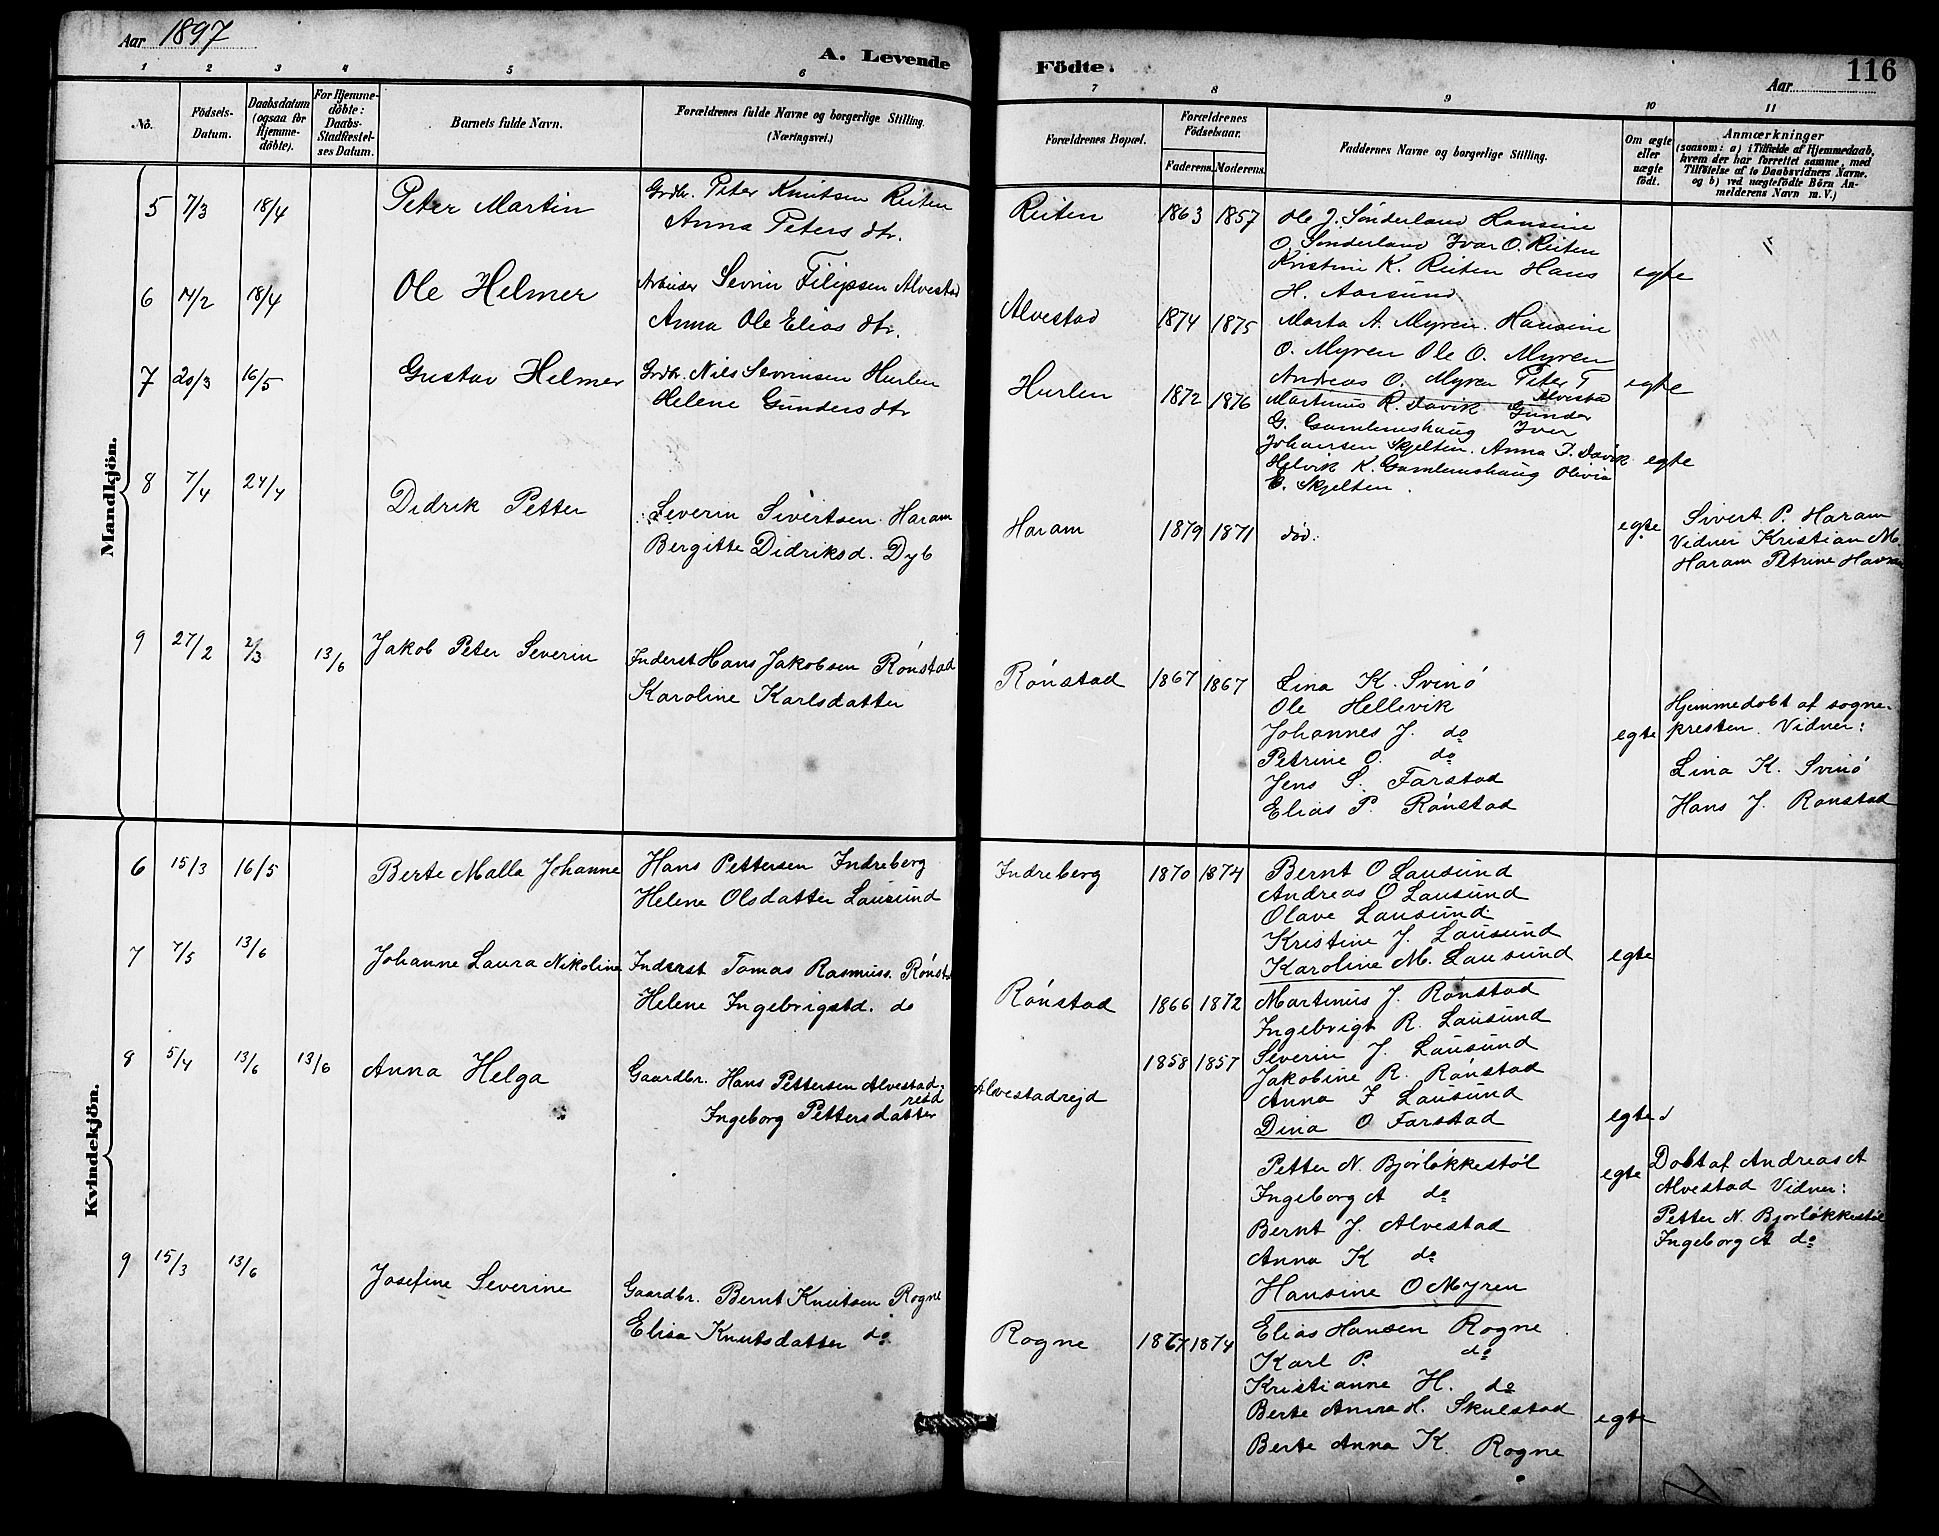 Aar 1897
A. Levende Födte.
Aar 116
1 2 3 4 5 6 7 8 9 10 11
Nö.
Födsels-
Datum.
Daabsdatum
(ogsaa for
Hjemme-
döbte).
For Hjemme-
döbte:
Daabs-
Stadfæstel-
ses Datum.
Barnets fulde Navn.
Forældrenes fulde Navne og borgerlige Stilling.
(Næringsvei.)
Forældrenes Bopæl.
Forældrenes
Födselsaar.
Faderens. Moderens.
Faddernes Navne og borgerlige Stilling.
Om ægte
eller
uægte
födt.
Anmærkninger
(saasom: a) i Tilfælde af Hjemmedaab,
hvem der har forrettet samme, med
Tilföielse af to Daabsvidners Navne.
og b) ved uægtefödte Börn An-
melderens Navn m. V.)
Mandkjön.
5 7/3 18/4 Peter Martin Grdbr. Peter Knutsen Reiten
Anna Peters dtr.
Reiten 1863 1857 Ole J. Sönderland Hansine
O. Sönderland Ivar O. Reiten
Kristine K. Reiten Hans
H. Aarsund
egte
6 14/2 18/4 Ole Helmer Arbeider Sevrin Filipsen Alvestad
Anna Ole Elias dtr.
Alvestad 1874 1875 Marta A. Myren. Hansine
O. Myren Ole O. Myren
Andreas O. Myren Peter T
Alvestad
egte
7 20/3 16/5 Gustav Helmer Grdbr. Nils Sevrinsen Hurlen
Helene Gunders dtr
Hurlen 1872 1876 Martinus R. Davik Gunder
G. Gamlemshaug Iver
Johansen Skjelten. Anna I. Davik
K. Gamlemshaug Olivia
E. Skjelten.
egte
8 7/4 24/4 Didrik Petter Severin Sivertsen Haram
Bergitte Didriksd. Dyb
Haram 1879 1871 död. egte Sivert P. Haram
Vidner Kristian M.
Haram Petrine Haram
9 27/2 2/3 13/6 Jakob Peter Severin Inderst Hans Jakobsen Rönstad
Karoline Karlsdatter
Rönstad 1867 1867 Lina K. Svinö
Ole Hellevik
Johannes J. do
Petrine O. do
Jens S. Farstad
Elias P. Rönstad
egte
Hjemmedöbt af sogne-
presten. Vidner:
Lina K. Svinö
Hans J. Rönstad
Kvindekjön.
6 15/3 16/5 Berte Malla Johanne Hans Pettersen Indreberg
Helene Olsdatter Lausund
Indreberg 1870 1874 Bernt O Lausund
Andreas O Lausund
Olave Lausund
Kristine J. Lausund
Karoline M. Lausund
egte
7 7/5 13/6 Johanne Laura Nikoline Inderst Tomas Rasmuss. Rönstad
Helene Ingebrigtsd. do
Rönstad 1866 1872 Martinus J. Rönstad
Ingebrigt R. Lausund
Severin J. Lausund
Jakobine R. Rönstad
Anna I Lausund
Dina O Farstad
egte
8 5/4 13/6 13/6 Anna Helga Gaardbr. Hans Pettersen Alvestad-
rejd
Ingeborg Pettersdatter
Alvestadrejd 1858 1857
Petter N. Björlökkestöl
Ingeborg A do
Bernt J. Alvestad
Anna K do
Hansine O Myren
egte
Döbt af Andreas A
Alvestad Vidner:
Petter N. Björlökkestöl
Ingeborg A do
9 15/3 13/6 Josefine Severine Gaardbr. Bernt Knutsen Rogne
Elisa Knutsdatter do
Rogne 1867 1874 Elias Hansen Rogne
Karl P. do
Kristianne H. do
Berte Anna H. Skulstad
Berte Anna K. Rogne
egte